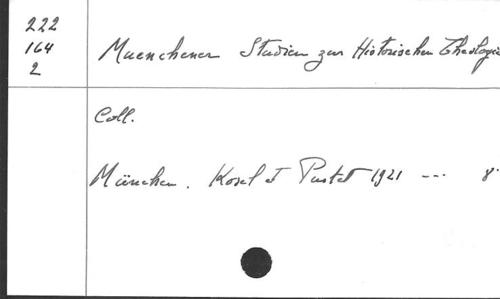 222
164
2
Muenchener Studien zur Historischen Theologie
Coll.
München. Kosel et Pustet 1921 --- 8°